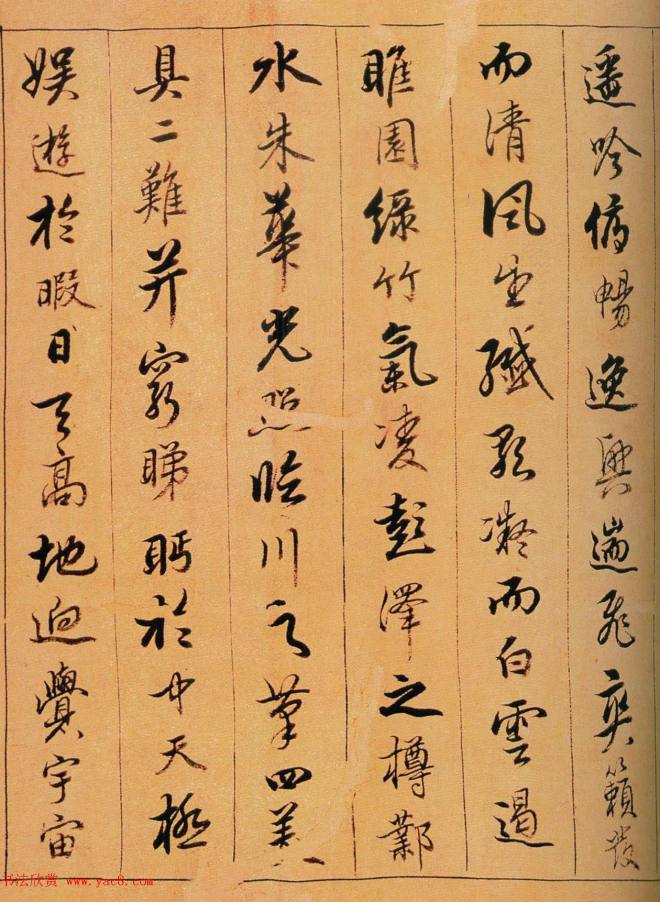 遥吟俯暢逸興遄飛爽籟發
而清風生纖歌凝而白雲遏
睢園綠竹氣凌彭澤之樽鄴
水朱華光照臨川之筆四美
具二難并窮睇眄於中天極
娛遊於暇日天高地迥覺宇宙
书法欣赏 www.yac8.com